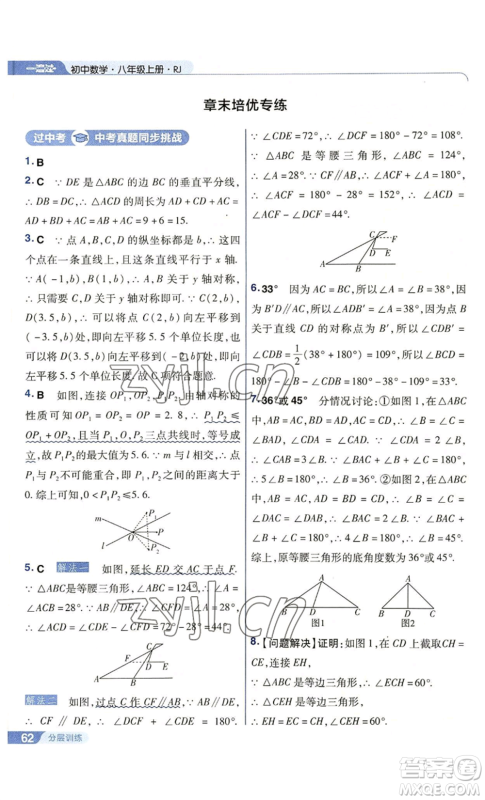 一遍过 初中数学·八年级上册·RJ
章末培优专练
过中考 中考真题同步挑战
1. B
2. C ∵ DE 是△ABC 的边 BC 的垂直平分线,
∴ DB=DC. ∴ △ACD 的周长为 AD+CD+AC=
AD+BD+AC=AB+AC=9+6=15.
3. C ∵ 点 A,B,C,D 的纵坐标都是 b,∴ 这四
个点在一条直线上,且该直线平行于 x 轴.
∵ A(-1,b),B(1,b),∴ A,B 关于 y 轴对称,
∴ 只需要 C,D 关于 y 轴对称即可. ∵ C(2,b),
D(3.5,b),∴ 可以将点 C(2,b)向左平移到
(-3.5,b),即向左平移 5.5 个单位长度,或可以将
D(3.5,b)向左平移到(-2,b),即向左平移
5.5 个单位长度,故 C 项符合题意.
4. B 如图,连接 OP₁,OP₂,P₁P₂,由轴对称的
性质可知 OP₁=OP=OP₂=2.8,∴ P₁P₂≤
OP₁+OP₂,且当 O,P₁,P₂三点共线时,等号成
立,∴ P₁P₂的最大值为 5.6. ∵ m 与 l 相交,∴ 点
P₁与 P₂不可能重合,即 P₁,P₂之间的距离大于
0. 综上可知,0<P₁P₂≤5.6.
m P₁ P O P₂ l
5. C 解法一 如图,延长 ED 交 AC 于点 F.
∵ △ABC 是等腰三角形,∠ABC=124°,∴ ∠A=
∠ACB=28°. ∵ AB∥DE,∴ ∠CFD=∠A=
28°,∴ ∠ACD=∠CDE-∠CFD=72°-28°=44°.
C F D E A B
解法二 如图,过点 C 作 CF∥AB,∵ AB∥DE,
∴ CF∥DE,∴ ∠CDE+∠DCF=180°.
∵ ∠CDE=72°,∴ ∠DCF=180°-72°=108°.
∵ △ABC 是等腰三角形,∠ABC=124°,
∴ ∠A=28°. ∵ CF∥AB,∴ ∠ACF+∠A=
180°,∴ ∠ACF=180°-28°=152°,∴ ∠ACD=
∠ACF-∠DCF=44°.
C F D E A B
6. 33° 因为 AC=BC,所以∠A=∠B=38°. 因
为 B'D∥AC,所以∠ADB'=∠A=38°. 因为点 B
关于直线 CD 的对称点为 B',所以∠CDB'=
∠CDB=1/2(38°+180°)=109°,所以∠BCD=
180°-∠B-∠CDB=180°-38°-109°=33°.
7. 36°或 45° 分情况讨论:①如图 1,AB=AC,
AD=BD,AC=CD. ∵ AB=AC,∴ ∠B=∠C=
∠BAD,∠CDA=∠CAD. ∵ ∠CDA=2∠B,
∴ ∠CAB=3∠B. ∵ ∠BAC+∠B+∠C=180°,
∴ 5∠B=180°,∴ ∠B=36°. ②如图 2,
AB=AC,AD=BD=CD,∴ ∠B=∠C=
∠DAC=∠DAB,∴ ∠BAC=2∠B. ∵ ∠BAC+
∠B+∠C=180°,∴ 4∠B=180°,∴ ∠B=45°.
综上,原等腰三角形的底角度数为 36°或 45°.
A A
B D C B D C
图1 图2
8. 【问题解决】证明:如图 1,在 CD 上截取 CH=
CE,∵ △ABC 是等边三角形,∴ ∠ECH=60°,
∴ △CEH 是等边三角形,
∴ EH=EC=CH,∠CEH=60°.
∵ △DEF 是等边三角形,
62 分层训练
zyjl.cn
zyjl.cn
答案圈
MXQE.COM